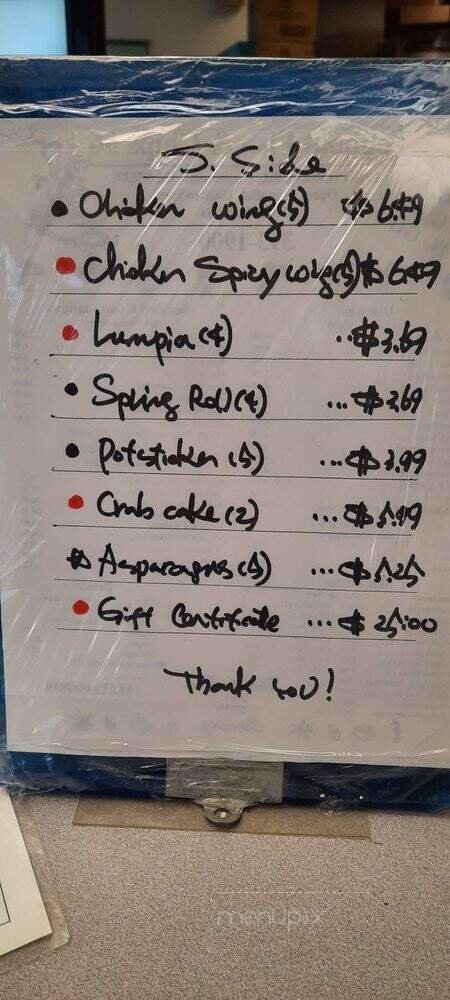 S. Side
• Chicken wing(5) $6.49
• Chicken Spicy wing(5) $6.49
• Lumpia(4) ...$3.69
• Spring Roll(4) ...$3.69
• Potsticker(5) ...$3.99
• Crab cake(2) ...$5.49
Asparagus(5) ...$5.25
• Gift Certificate ...$25.00
Thank you!
menupix